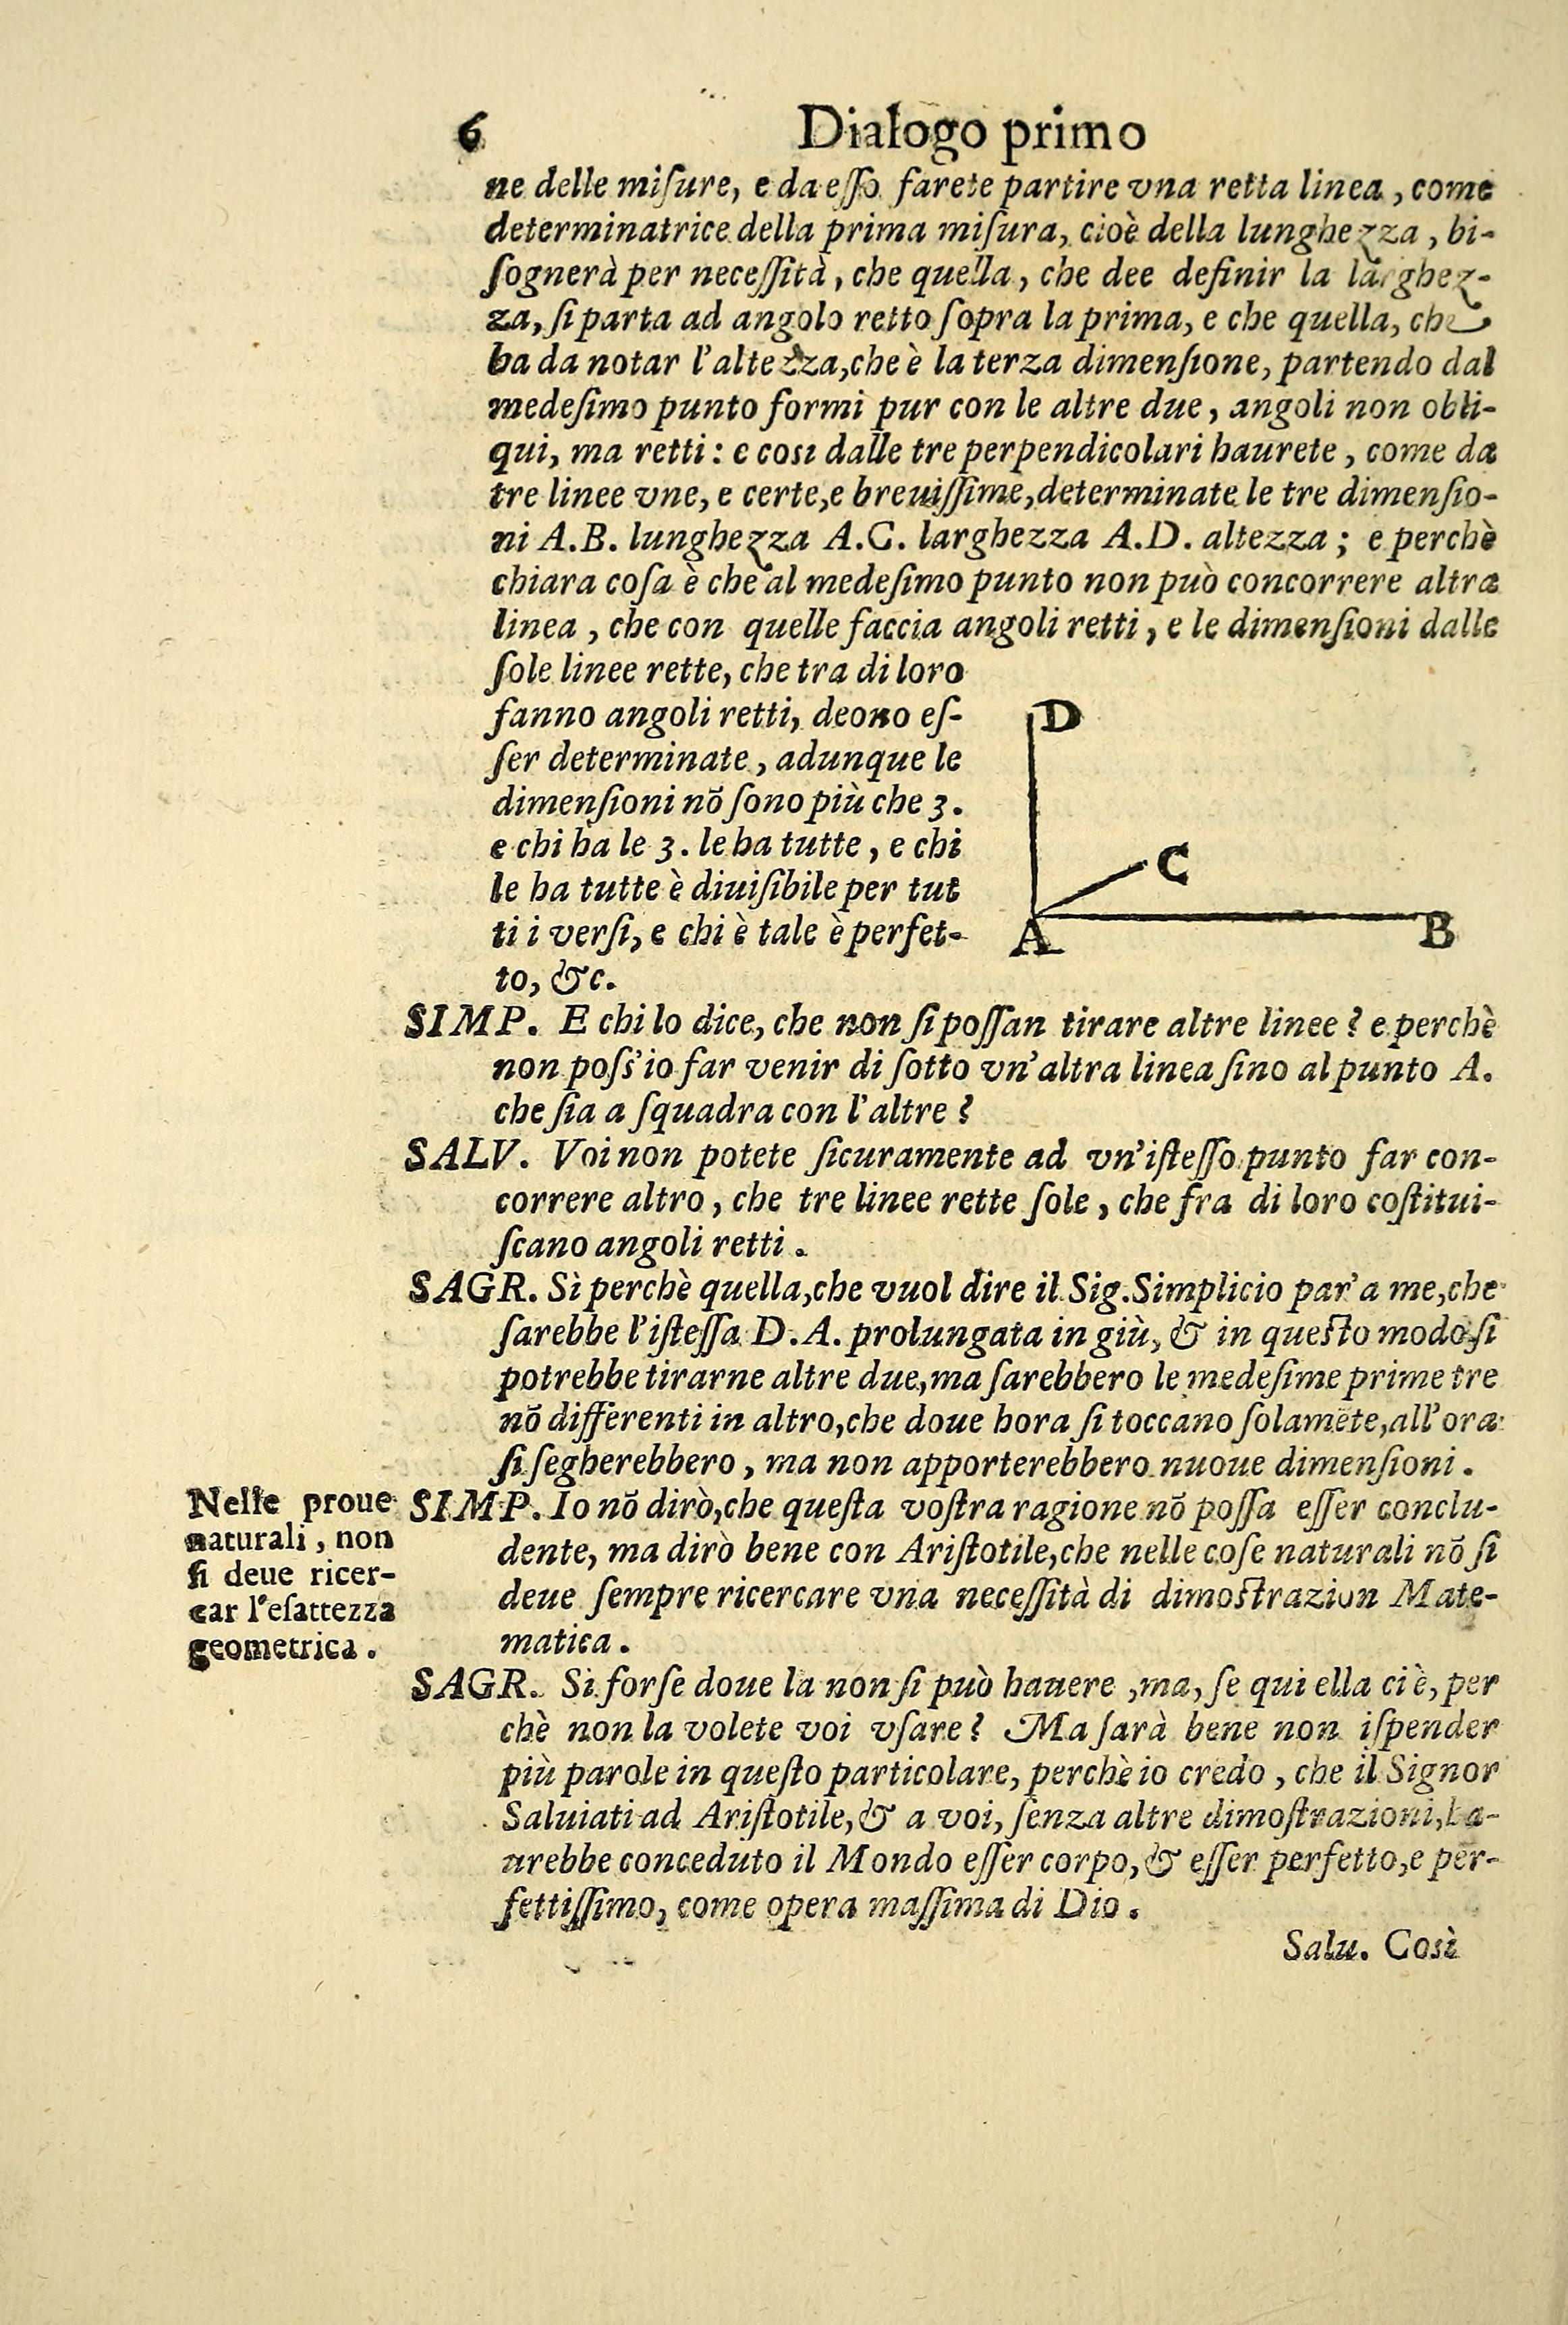 6 Dialogo primo
ne delle miſure, e da eſſo farete partire vna retta linea, come
determinatrice della prima miſura, cioè della lunghezza, bi-
ſognerà per neceſſità, che quella, che dee definir la larghez-
za, ſi parta ad angolo retto ſopra la prima, e che quella, che
ha da notar l'altezza, che è la terza dimenſione, partendo dal
medeſimo punto formi pur con le altre due, angoli non obli-
qui, ma retti: e cosı dalle tre perpendicolari haurete, come da
tre linee vne, e certe, e breuiſſime, determinate le tre dimenſio-
ni A.B. lunghezza A.C. larghezza A.D. altezza; e perchè
chiara coſa è che al medeſimo punto non può concorrere altra
linea, che con quelle faccia angoli retti, e le dimenſioni dalle
ſole linee rette, che tra di loro
fanno angoli retti, deono eſ-
ſer determinate, adunque le
dimenſioni nō ſono più che 3.
e chi ha le 3. le ha tutte, e chi
le ha tutte è diuiſibile per tut
ti i verſi, e chi è tale è perfet-
to, &c.
D
C
A
B
SIMP. E chi lo dice, che non ſi poſſan tirare altre linee? e perchè
non poſs'io far venir di ſotto vn'altra linea ſino al punto A.
che ſia a ſquadra con l'altre?
SALV. Voi non potete ſicuramente ad vn'iſteſſo punto far con-
correre altro, che tre linee rette ſole, che fra di loro coſtitui-
ſcano angoli retti.
SAGR. Sì perchè quella, che vuol dire il Sig. Simplicio par'a me, che
ſarebbe l'iſteſſa D.A. prolungata in giù, & in queſto modo ſi
potrebbe tirarne altre due, ma ſarebbero le medeſime prime tre
nō differenti in altro, che doue hora ſi toccano ſolamēte, all'ora
ſi ſegherebbero, ma non apporterebbero nuoue dimenſioni.
Nelle proue
naturali, non
ſi deue ricer-
car l'eſattezza
geometrica.
SIMP. Io nō dirò, che queſta voſtra ragione nō poſſa eſſer conclu-
dente, ma dirò bene con Ariſtotile, che nelle coſe naturali nō ſi
deue ſempre ricercare vna neceſſità di dimoſtrazion Mate-
matica.
SAGR. Sì forſe doue la non ſi può hauere, ma, ſe qui ella ci è, per
chè non la volete voi vſare? Ma ſarà bene non iſpender
più parole in queſto particolare, perchè io credo, che il Signor
Saluiati ad Ariſtotile, & a voi, ſenza altre dimoſtrazioni, ha-
urebbe conceduto il Mondo eſſer corpo, & eſſer perfetto, e per-
fettiſſimo, come opera maſſima di Dio.
Salu. Così